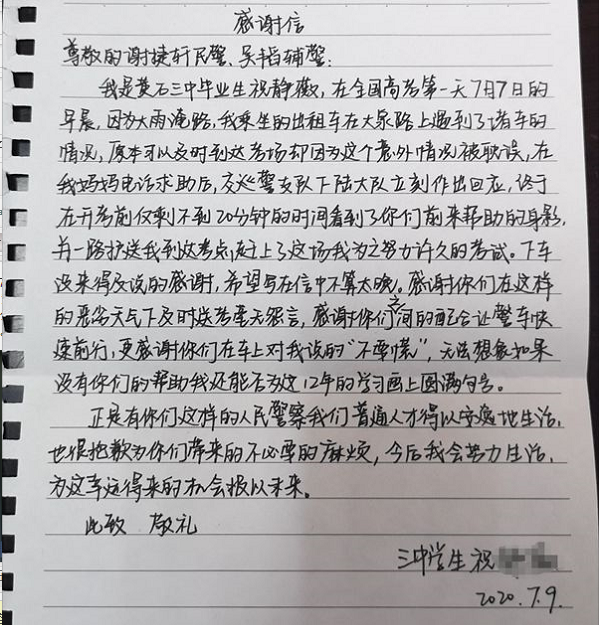 感谢信
尊敬的谢捷轩民警、吴哲辅警：
我是黄石三中毕业生祝静薇，在全国高考第一天7月7日的
早晨，因为大雨淹路，我乘坐的出租车在大泉路上遇到了堵车的
情况，原本可以及时到达考场却因为这个意外情况被耽误，在
我妈妈电话求助后，交巡警支队下陆大队立刻作出回应，终于
在开考前仅剩不到20分钟的时间看到了你们前来帮助的身影，
并一路护送我到达考点赶上了这场我为之努力许久的考试。下车
没来得及说的感谢，希望写在信中不算太晚。感谢你们在这样
的恶劣天气下及时送考毫无怨言，感谢你们之间的配合让警车快
速前行，更感谢你们在车上对我说的“不要慌”，无法想象如果
没有你们的帮助我还能否为这12年的学习画上圆满句号。
正是有你们这样的人民警察我们普通人才得以安逸地生活，
也很抱歉为你们带来的不必要的麻烦，今后我会努力生活，
为这幸运得来的机会报以未来。
此致 敬礼
三中学生祝
2020.7.9.